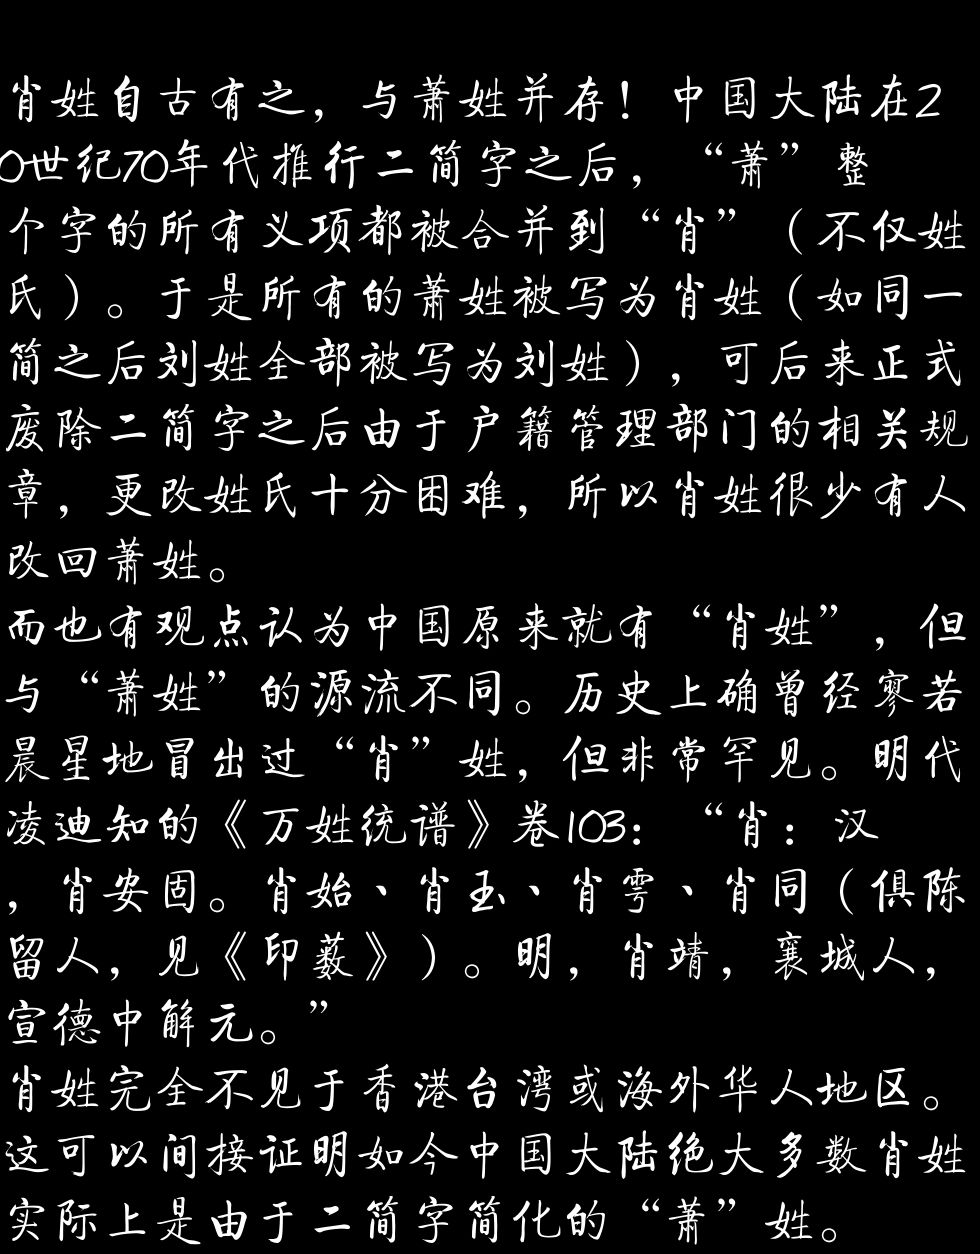 肖姓自古有之，与萧姓并存！中国大陆在2
0世纪70年代推行二简字之后，“萧”整
个字的所有义项都被合并到“肖”（不仅姓
氏）。于是所有的萧姓被写为肖姓（如同一
简之后刘姓全部被写为刘姓），可后来正式
废除二简字之后由于户籍管理部门的相关规
章，更改姓氏十分困难，所以肖姓很少有人
改回萧姓。
而也有观点认为中国原来就有“肖姓”，但
与“萧姓”的源流不同。历史上确曾经寥若
晨星地冒出过“肖”姓，但非常罕见。明代
凌迪知的《万姓统谱》卷103：“肖：汉
，肖安固。肖始、肖玉、肖雩、肖同（俱陈
留人，见《印薮》）。明，肖靖，襄城人，
宣德中解元。”
肖姓完全不见于香港台湾或海外华人地区。
这可以间接证明如今中国大陆绝大多数肖姓
实际上是由于二简字简化的“萧”姓。